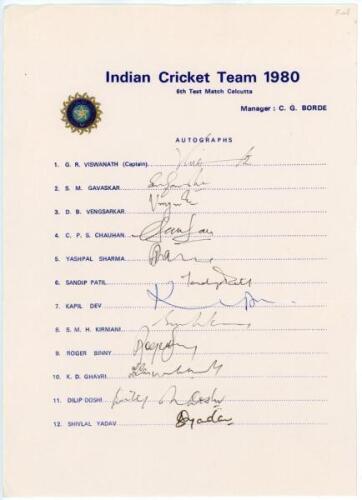 Indian Cricket Team 1980
6th Test Match Calcutta
Manager : C. G. BORDE
AUTOGRAPHS
1. G. R. VISWANATH (Captain)
2. S. M. GAVASKAR
3. D. B. VENGSARKAR
4. C. P. S. CHAUHAN
5. YASHPAL SHARMA
6. SANDIP PATIL Sandip Patil
7. KAPIL DEV
8. S. M. H. KIRMANI
9. ROGER BINNY
10. K. D. GHAVRI
11. DILIP DOSHI Dilip Doshi
12. SHIVLAL YADAV Syadav